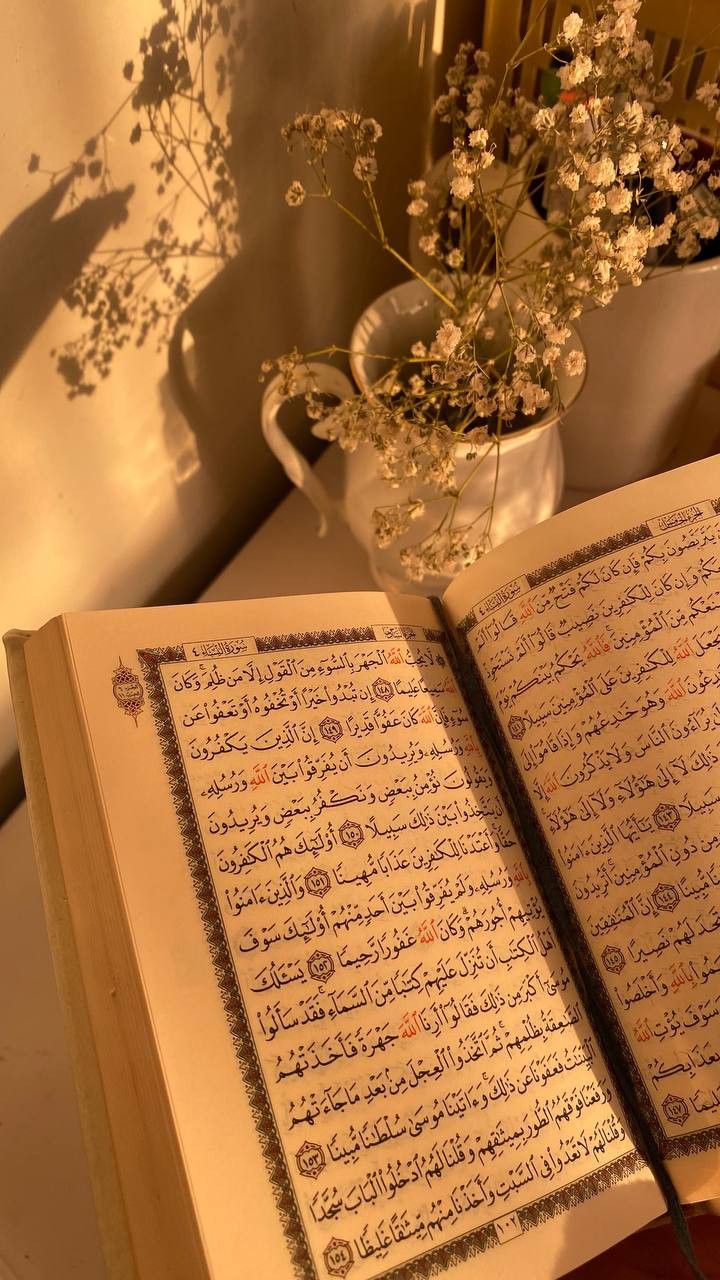 سُورَةُ النِّسَاءِ
الجُزْءُ الخَامِسُ
يَتَرَبَّصُونَ بِكُمْ فَإِن كَانَ لَكُمْ فَتْحٌ مِّنَ ٱللَّهِ قَالُوٓا۟ أَلَمْ
وَإِن كَانَ لِلْكَٰفِرِينَ نَصِيبٌ قَالُوٓا۟ أَلَمْ نَسْتَحْوِذْ
مِّنَ ٱلْمُؤْمِنِينَ ۚ فَٱللَّهُ يَحْكُمُ بَيْنَكُمْ يَوْمَ
ٱللَّهُ لِلْكَٰفِرِينَ عَلَى ٱلْمُؤْمِنِينَ سَبِيلًا ١٤١
ٱللَّهَ وَهُوَ خَٰدِعُهُمْ وَإِذَا قَامُوٓا۟ إِلَى
يُرَآءُونَ ٱلنَّاسَ وَلَا يَذْكُرُونَ ٱللَّهَ إِلَّا
ذَٰلِكَ لَآ إِلَىٰ هَٰٓؤُلَآءِ وَلَآ إِلَىٰ هَٰٓؤُلَآءِ
سَبِيلًا ١٤٣ يَٰٓأَيُّهَا ٱلَّذِينَ ءَامَنُوا۟
مِن دُونِ ٱلْمُؤْمِنِينَ ۚ أَتُرِيدُونَ
مُّبِينًا ١٤٤ إِنَّ ٱلْمُنَٰفِقِينَ
تَجِدَ لَهُمْ نَصِيرًا ١٤٥
بِٱللَّهِ وَأَخْلَصُوا۟
سَوْفَ يُؤْتِ ٱللَّهُ
بِعَذَابِكُمْ
١٤٧
سُورَةُ النِّسَاءِ ٤
لَّا يُحِبُّ ٱللَّهُ ٱلْجَهْرَ بِٱلسُّوٓءِ مِنَ ٱلْقَوْلِ إِلَّا مَن ظُلِمَ ۚ وَكَانَ
ٱللَّهُ سَمِيعًا عَلِيمًا ١٤٨ إِن تُبْدُوا۟ خَيْرًا أَوْ تُخْفُوهُ أَوْ تَعْفُوا۟ عَن
سُوٓءٍ فَإِنَّ ٱللَّهَ كَانَ عَفُوًّا قَدِيرًا ١٤٩ إِنَّ ٱلَّذِينَ يَكْفُرُونَ
بِٱللَّهِ وَرُسُلِهِۦ وَيُرِيدُونَ أَن يُفَرِّقُوا۟ بَيْنَ ٱللَّهِ وَرُسُلِهِۦ
نُؤْمِنُ بِبَعْضٍ وَنَكْفُرُ بِبَعْضٍ وَيُرِيدُونَ
أَن يَتَّخِذُوا۟ بَيْنَ ذَٰلِكَ سَبِيلًا ١٥٠ أُو۟لَٰٓئِكَ هُمُ ٱلْكَٰفِرُونَ
حَقًّا ۚ وَأَعْتَدْنَا لِلْكَٰفِرِينَ عَذَابًا مُّهِينًا ١٥١ وَٱلَّذِينَ ءَامَنُوا۟
بِٱللَّهِ وَرُسُلِهِۦ وَلَمْ يُفَرِّقُوا۟ بَيْنَ أَحَدٍ مِّنْهُمْ أُو۟لَٰٓئِكَ سَوْفَ
يُؤْتِيهِمْ أُجُورَهُمْ ۗ وَكَانَ ٱللَّهُ غَفُورًا رَّحِيمًا ١٥٢ يَسْـَٔلُكَ
أَهْلُ ٱلْكِتَٰبِ أَن تُنَزِّلَ عَلَيْهِمْ كِتَٰبًا مِّنَ ٱلسَّمَآءِ ۚ فَقَدْ سَأَلُوا۟
مُوسَىٰٓ أَكْبَرَ مِن ذَٰلِكَ فَقَالُوٓا۟ أَرِنَا ٱللَّهَ جَهْرَةً فَأَخَذَتْهُمُ
ٱلصَّٰعِقَةُ بِظُلْمِهِمْ ۚ ثُمَّ ٱتَّخَذُوا۟ ٱلْعِجْلَ مِنۢ بَعْدِ مَا جَآءَتْهُمُ
ٱلْبَيِّنَٰتُ فَعَفَوْنَا عَن ذَٰلِكَ ۚ وَءَاتَيْنَا مُوسَىٰ سُلْطَٰنًا مُّبِينًا ١٥٣
وَرَفَعْنَا فَوْقَهُمُ ٱلطُّورَ بِمِيثَٰقِهِمْ وَقُلْنَا لَهُمُ ٱدْخُلُوا۟ ٱلْبَابَ سُجَّدًا
وَقُلْنَا لَهُمْ لَا تَعْدُوا۟ فِى ٱلسَّبْتِ وَأَخَذْنَا مِنْهُم مِّيثَٰقًا غَلِيظًا ١٥٤
١٠٢